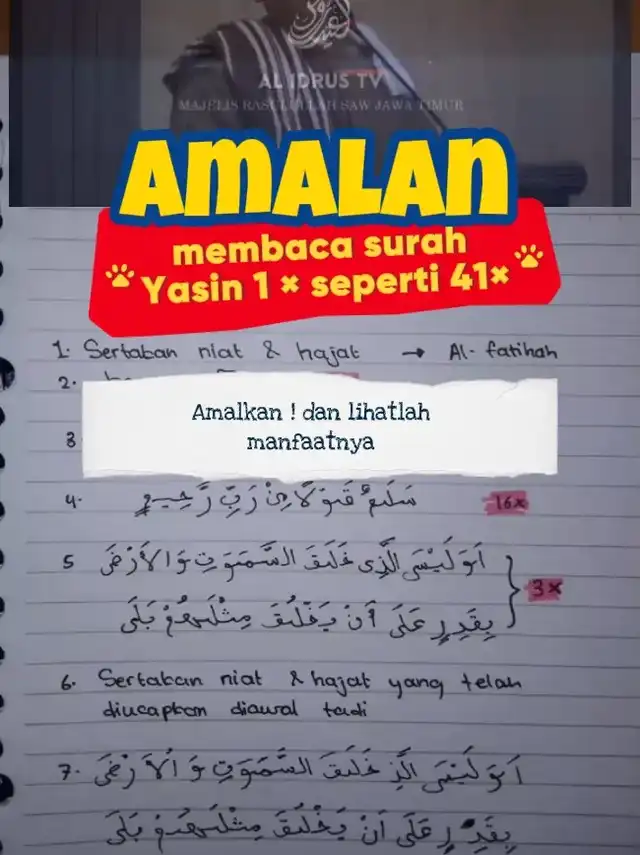 AL IDRUS TV
MAJELIS RASULULLAH SAW JAWA TIMUR
AMALAN
membaca surah
Yasin 1 × seperti 41×
1. Sertakan niat & hajat → Al-fatihah
2.
Amalkan ! dan lihatlah
manfaatnya
3
4. سَلَٰمٌ قَوْلًا مِنْ رَبٍّ رَّحِيمٍ 16x
5 اَوَلَيْسَ الَّذِى خَلَقَ السَّمَوَتِ وَالْاَرْضَ
بِقَدِرٍ عَلَى اَنْ يَخْلُقَ مِثْلَهُمْ بَلَى } 3x
6. Sertakan niat & hajat yang telah
diucapkan diawal tadi
7. اَوَلَيْسَ الَّذِ خَلَقَ السَّمَوَتِ وَالْاَرْضَ
بِقَدِرٍ عَلَى اَنْ يَخْلُقَ مِثْلَهُمْ بَلَى